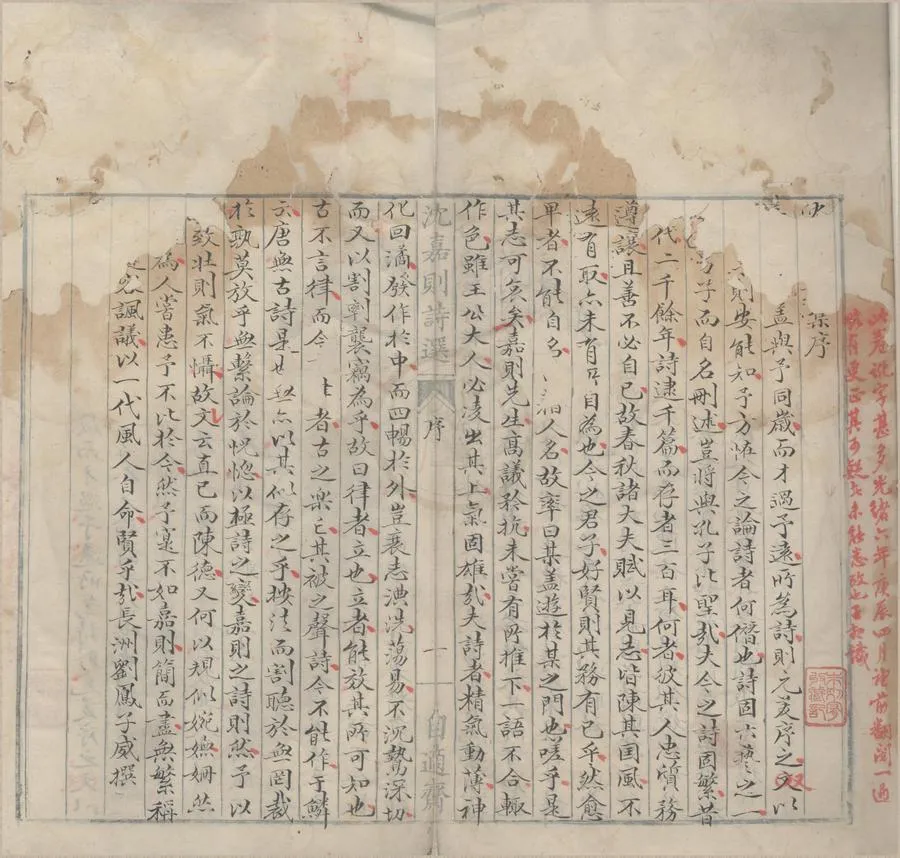 此卷訛字甚多光緒六年庚辰四月初
翻閱一過
序
孟與予同歲而才過予遠所為詩則元美序之文以
則安能知予方怪今之論詩者何僭也詩固六藝之一
子而自名刪述豈將與孔子比聖哉夫今之詩固繁昔
代二千餘年詩逮千篇而存者三百耳何者彼其人忠質務
遵讓且善不必自已故春秋諸大夫賦以見志皆陳其国風不
遠有取亦未有自為也今之君子好賢則其務有已乎然愈
卑者不能自名人名故率曰某盖遊於某之門也嗟乎是
其志可哀矣嘉則先生高議矜抗未嘗有所推下一語不合輒
作色雖王公大人必凌出其上氣固雄哉夫詩者精氣動薄神
沈嘉則詩選
序
一
自適齋
化回潏發作於中而四暢於外豈褰志淟洗蕩易不沉鷙深切
而又以割剝襲竊為乎故曰律者立也立者能放其所可知也
古不言律而今者古之楽已其被之聲詩今不能作于鱗
云唐無古詩是亦以其似存之乎按法而割聽於無罔裁
於孰莫放乎無繫論於恍惚以極詩之變嘉則之詩則然予以
致壯則氣不懾故文云直已而陳德又何以規似婉嫵姍然
為人嘗患予不比於今然予寔不如嘉則簡而盡無繁稱
諷議以一代風人自命賢乎哉長洲劉鳳子威撰